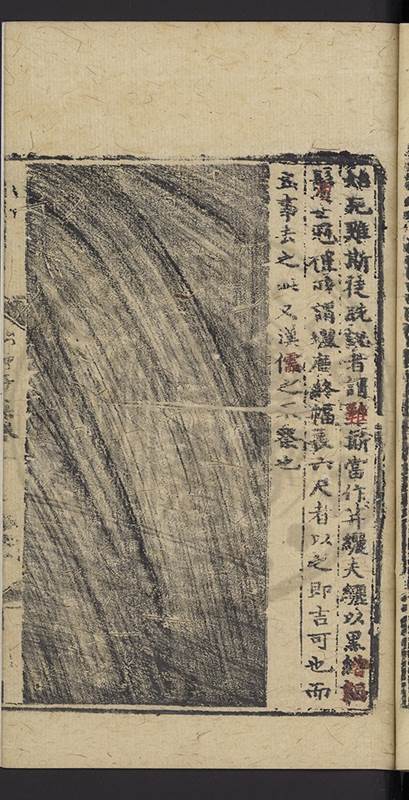 始死雞斯徒跣說者謂雞斯當作笄纚夫纚以黑繒韜
髮士冠禮所謂纚廣終幅長六尺者以之即吉可也而
事去之此又漢儒之一也